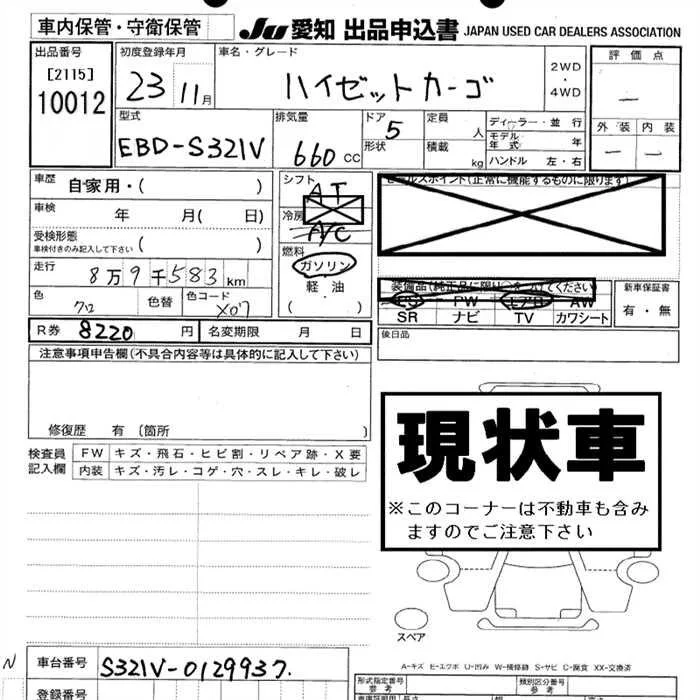 車内保管・守衛保管
JU 愛知 出品申込書 JAPAN USED CAR DEALERS ASSOCIATION
出品番号
[2115]
10012
初度登録年月
23 11月
車名・グレード
ハイゼットカーゴ
2WD
・
4WD
評価点
—
外装 内装
— —
型式
EBD-S321V
排気量
660 cc
ドア 5
形状
定員 人
積載 kg
ディーラー・並行
モデル年式 年
ハンドル 左・右
車歴 自家用・( )
車検 年 月( 日)
受検形態
車検付きのみ記入して下さい ( )
走行 8万9千583km
色 クロ 色替 色コード X07
シフト AT
冷房 A/C
燃料
ガソリン
・
軽油
( )
セールスポイント(正常に機能するものに限ります)
装備品(純正品に限り○をつけてください)
PS PW エアB AW
SR ナビ TV カワシート
新車保証書
有・無
R券 8220 円 名変期限 月 日
後日品
注意事項申告欄(不具合内容等は具体的に記入して下さい)
修復歴 有 〔箇所 〕
検査員
記入欄
FW キズ・飛石・ヒビ割・リペア跡・X要
内装 キズ・汚レ・コゲ・穴・スレ・キレ・破レ
現状車
※このコーナーは不動車も含み
ますのでご注意下さい
スペア
A-キズ E-エクボ U-凹み W-補修跡 S-サビ C-腐食 XX-交換済
N
車台番号 S321V-0129937.
登録番号
形式指定番号
参考
類別区分番号
参考